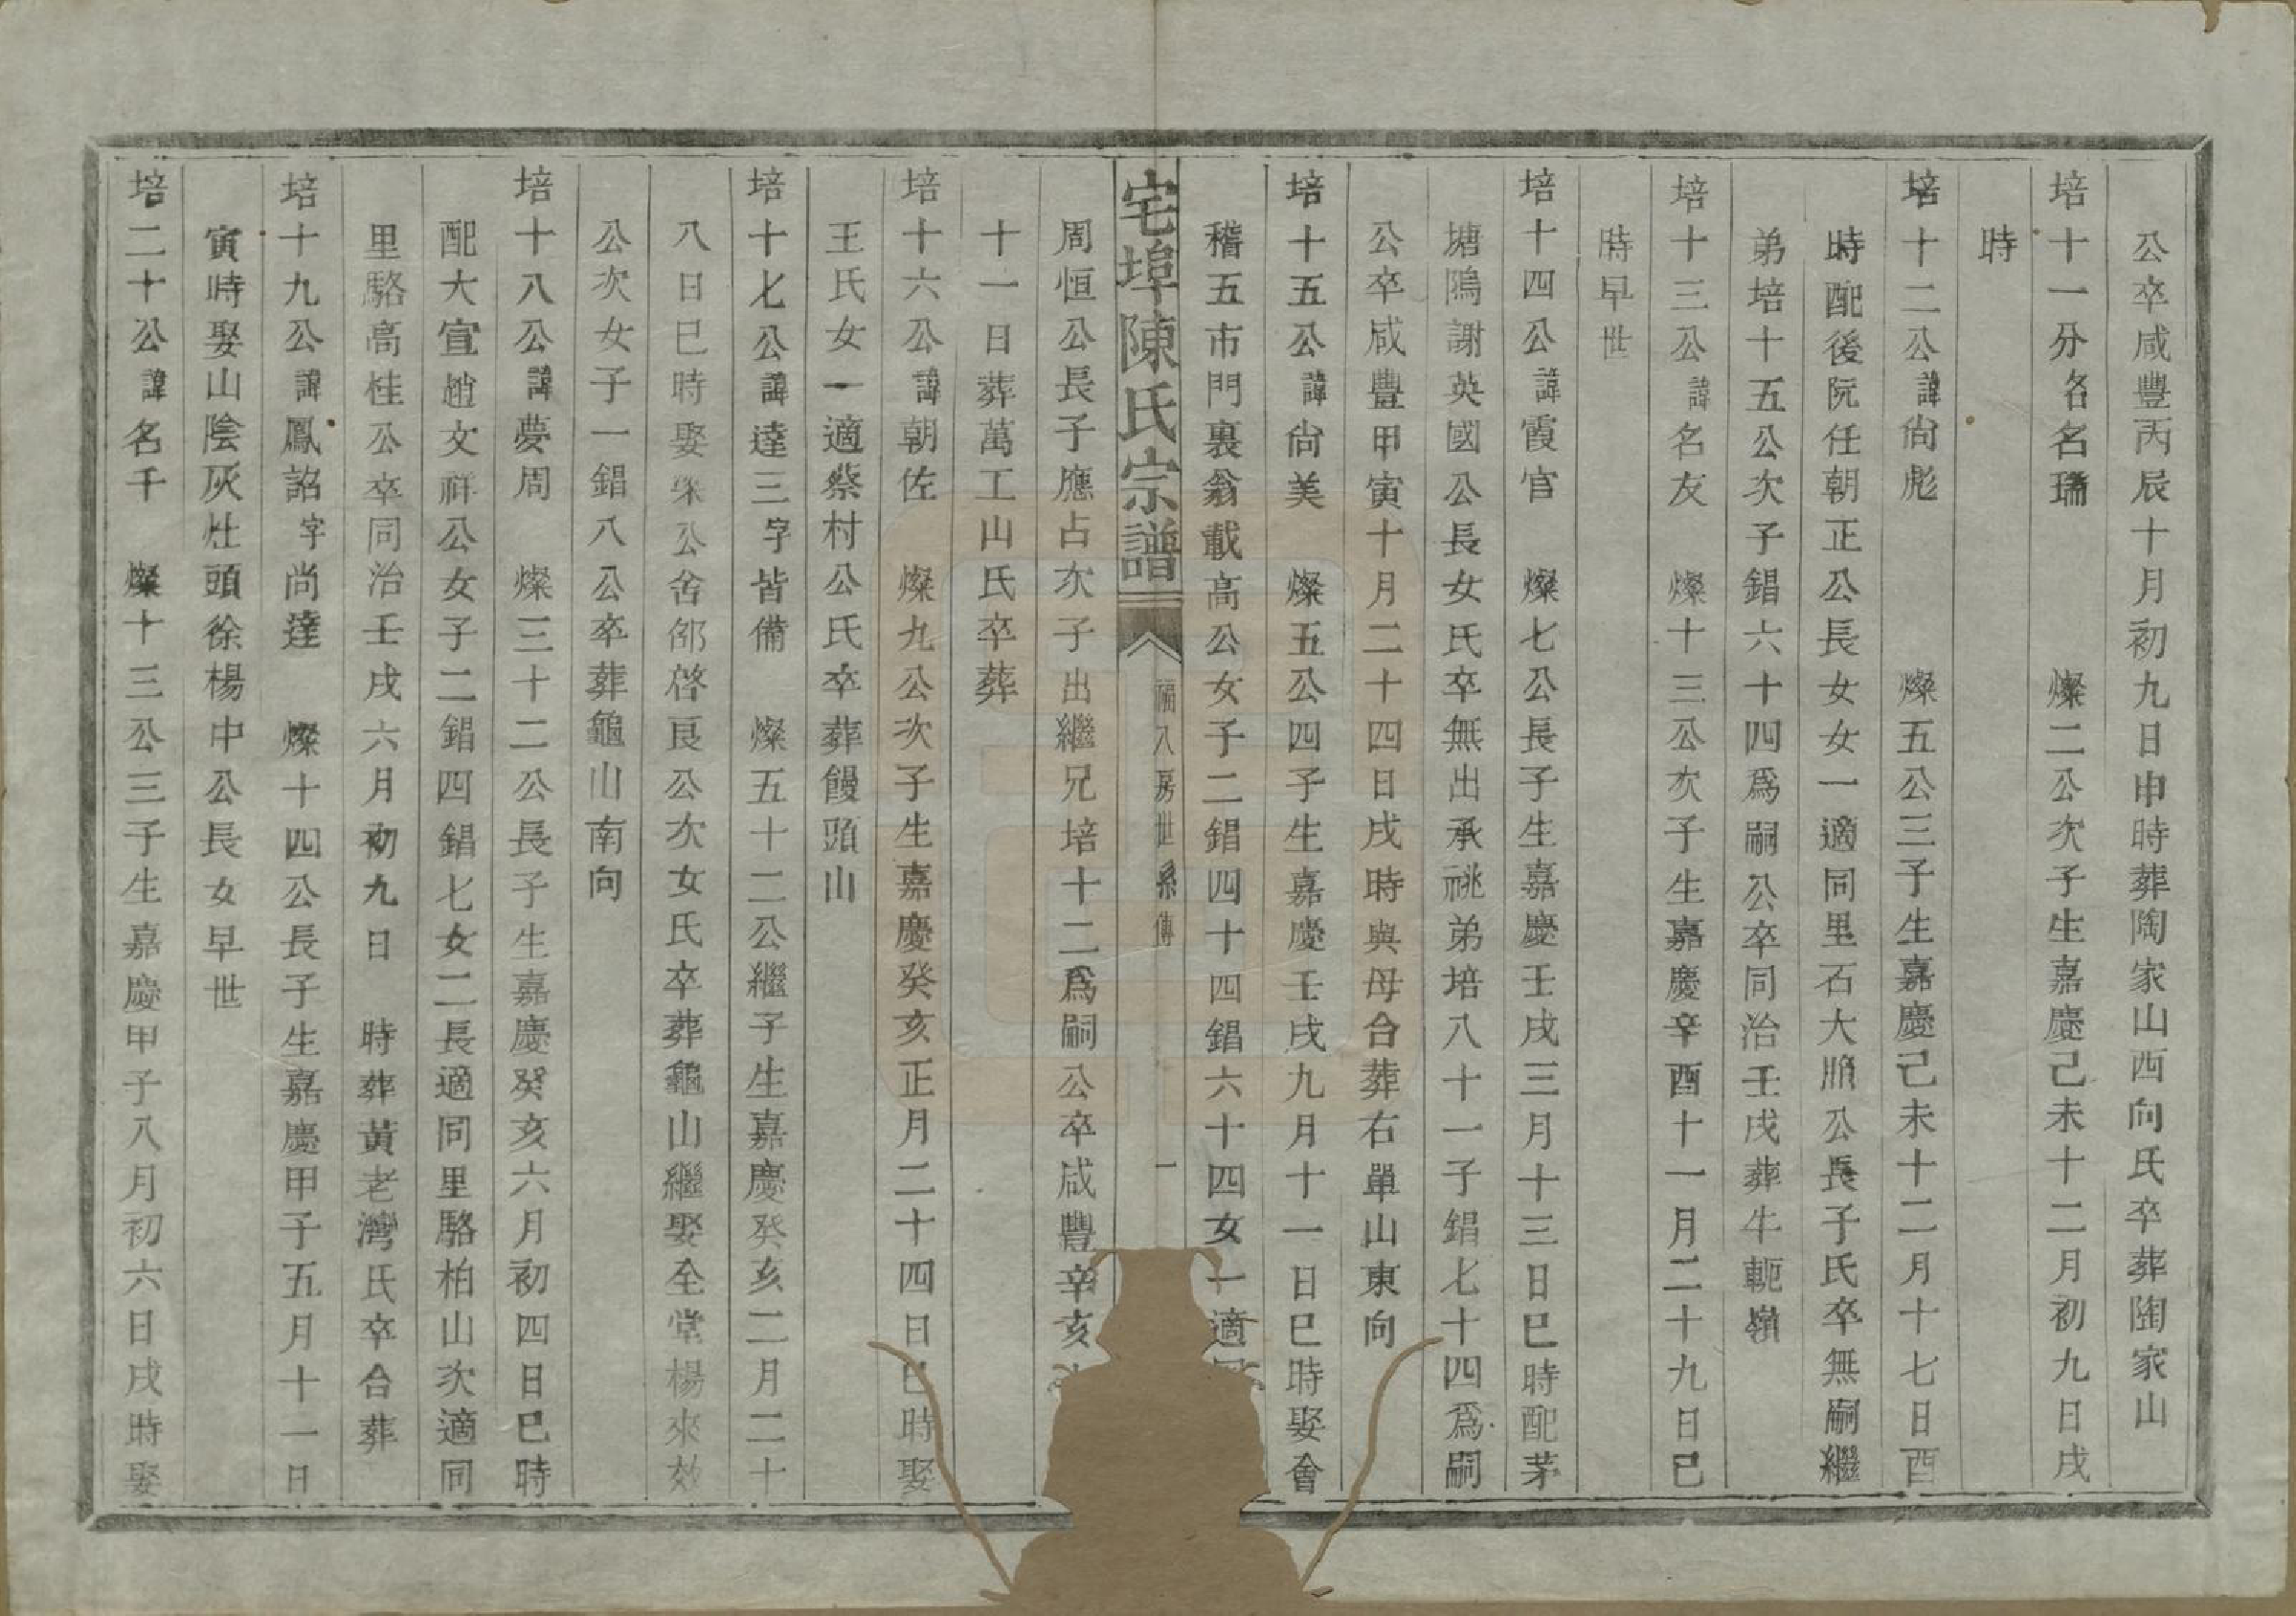 公卒咸豐丙辰十月初九日申時葬陶家山西向氏卒葬陶家山
培十一分名名瑞 燦二公次子生嘉慶己未十二月初九日戌
時
培十二公諱尙彪 燦五公三子生嘉慶己未十二月十七日酉
時配後阮任朝正公長女女一適同里石大順公長子氏卒無嗣繼
弟培十五公次子錩六十四爲嗣公卒同治壬戌葬牛軛嶺
培十三公諱名友 燦十三公次子生嘉慶辛酉十一月二十九日巳
時早世
培十四公諱霞官 燦七公長子生嘉慶壬戌三月十三日巳時配茅
塘隖謝英國公長女氏卒無出承祧弟培八十一子錩七十四爲嗣
公卒咸豐甲寅十月二十四日戌時與母合葬右單山東向
培十五公諱尙美 燦五公四子生嘉慶壬戌九月十一日巳時娶會
稽五市門裏翁載高公女子二錩四十四錩六十四女一適
宅埠陳氏宗譜 福八房世系傳 一
周恒公長子應占次子出繼兄培十二爲嗣公卒咸豐辛亥
十一日葬萬工山氏卒葬
培十六公諱朝佐 燦九公次子生嘉慶癸亥正月二十四日巳時娶
王氏女一適蔡村公氏卒葬饅頭山
培十七公諱達三字皆備 燦五十二公繼子生嘉慶癸亥二月二十
八日巳時娶梁公舍邵啓良公次女氏卒葬龜山繼娶全堂楊來效
公次女子一錩八公卒葬龜山南向
培十八公諱夢周 燦三十二公長子生嘉慶癸亥六月初四日巳時
配大宣趙文祥公女子二錩四錩七女二長適同里駱柏山次適同
里駱高桂公卒同治壬戌六月初九日 時葬黃老灣氏卒合葬
培十九公諱鳳詔字尚達 燦十四公長子生嘉慶甲子五月十一日
寅時娶山陰灰灶頭徐楊中公長女早世
培二十公諱名千 燦十三公三子生嘉慶甲子八月初六日戌時娶